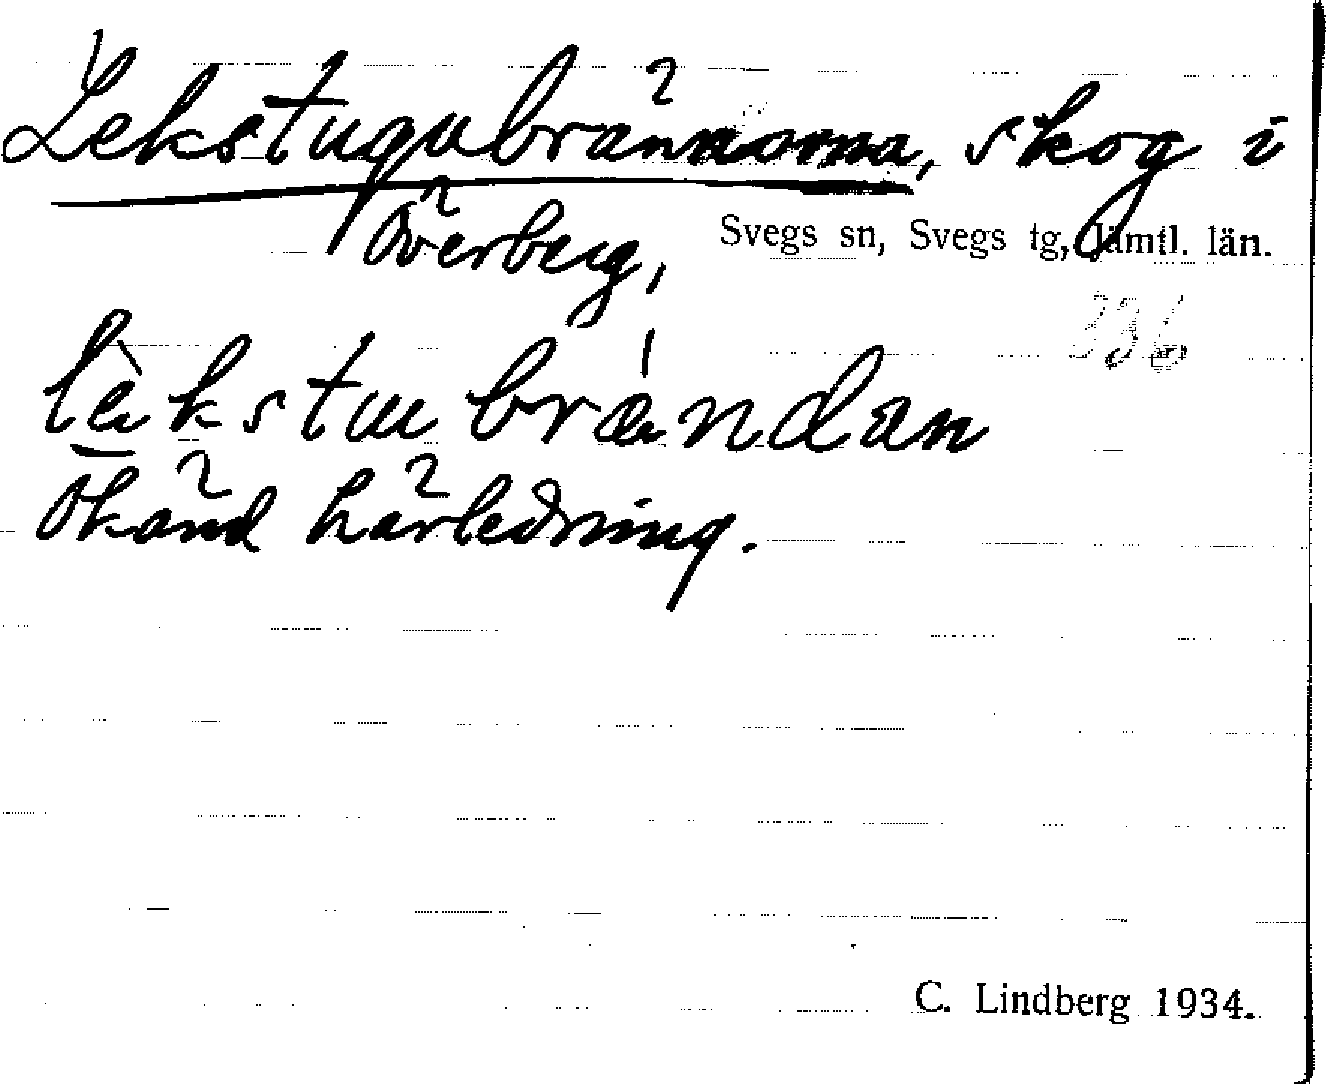 Lekstugubrännorna, skog i
Överberg,
Svegs sn, Svegs tg, Jämtl. län.
336
lèkstuu brǽndan
Okänd härledning.
C. Lindberg 1934.